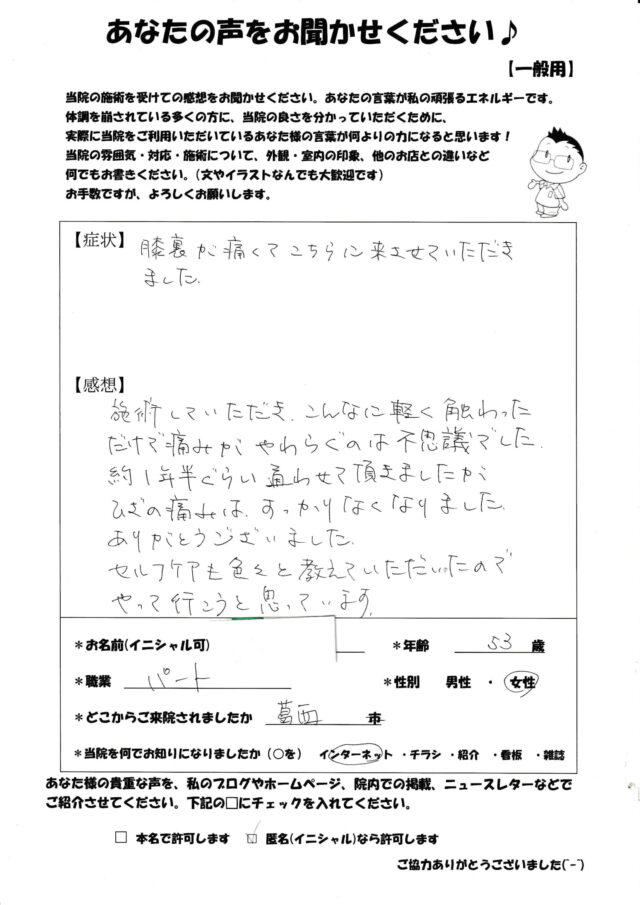 あなたの声をお聞かせください♪
【一般用】
当院の施術を受けての感想をお聞かせください。あなたの言葉が私の頑張るエネルギーです。
体調を崩されている多くの方に、当院の良さを分かっていただくために、
実際に当院をご利用いただいているあなた様の言葉が何よりの力になると思います！
当院の雰囲気・対応・施術について、外観・室内の印象、他のお店との違いなど
何でもお書きください。（文やイラストなんでも大歓迎です）
お手数ですが、よろしくお願いします。
【症状】 膝裏が痛くてこちらに来させていただき
ました.
【感想】
施術していただき、こんなに軽く触わった
だけで痛みが やわらぐのは不思議でした.
約1年半ぐらい通わせて頂きましたが
ひざの痛みは、すっかりなくなりました.
ありがとうございました.
セルフケアも色々と教えていただいたので
やって行こうと思っています.
＊お名前(イニシャル可) ＊年齢 53 歳
＊職業 パート ＊性別 男性 ・ 女性
＊どこからご来院されましたか 葛西 市
＊当院を何でお知りになりましたか（○を） インターネット ・チラシ ・紹介 ・看板 ・雑誌
あなた様の貴重な声を、私のブログやホームページ、院内での掲載、ニュースレターなどで
ご紹介させてください。下記の□にチェックを入れてください。
□ 本名で許可します ☑ 匿名(イニシャル)なら許可します
ご協力ありがとうございました(^-^)